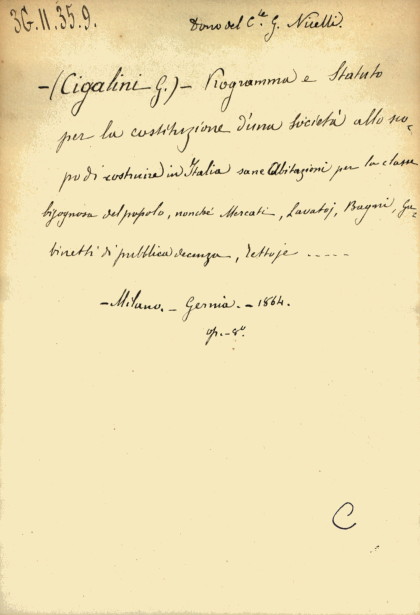 3G.11.35.9.
Dono del C.te G. Nicelli.
-(Cigalini G.)- Programma e Statuto
per la costituzione d'una Società allo sco-
po di costruire in Italia sane Abitazioni per la classe
bisognosa del popolo, nonché Mercati, Lavatoj, Bagni, Ga-
binetti di pubblica decenza, Tettoje -----
-Milano. - Gernia. - 1864.
op. - 8°
C